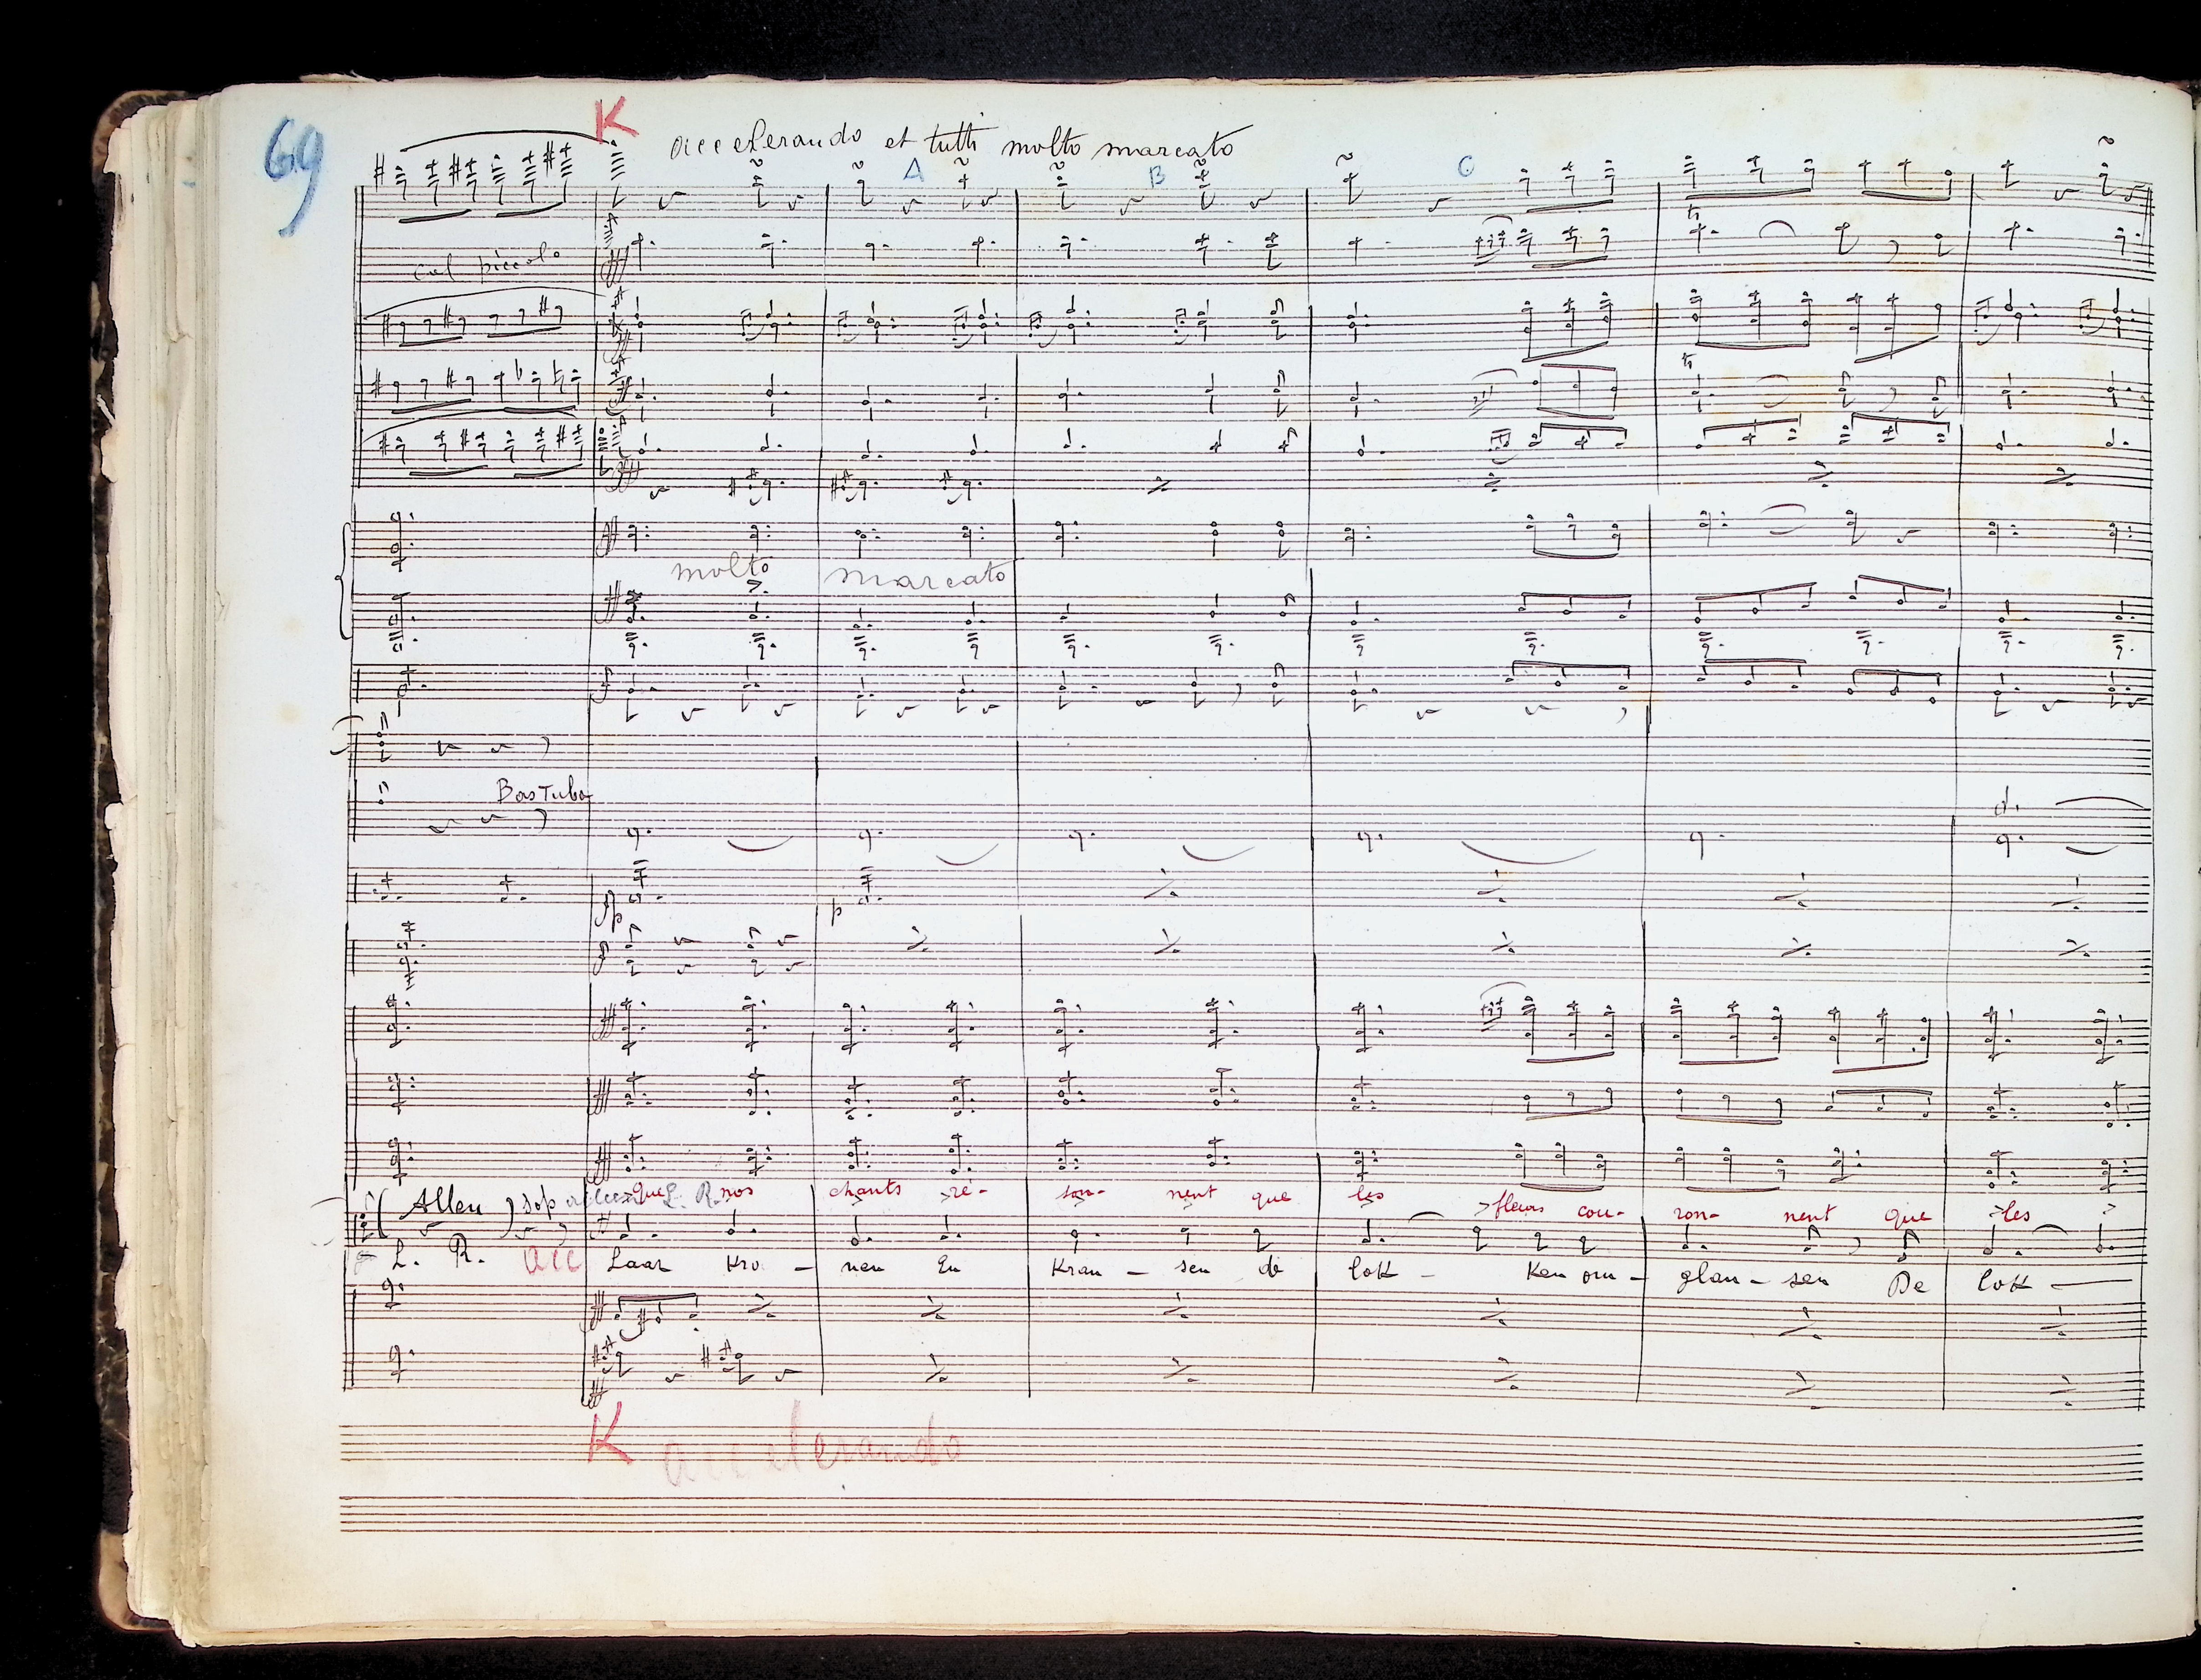 69
K
accelerando et tutti molto marcato
A B C
col piccolo
molto marcato
Bas Tuba
(Allen) sop L. R.
que nos chants ré- son- nent que les fleurs cou- ron- nent que les
L. R. acc
Laar Kro - nen En Kran - sen de lok - ken om - glan - sen De lok -
K accelerando